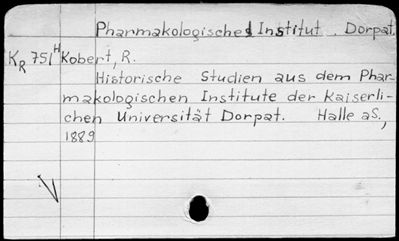 Pharmakologisches Institut. Dorpat.
K_R 751^H Kobert, R.
Historische Studien aus dem Phar-
makologischen Institute der Kaiserli-
chen Universität Dorpat. Halle aS.,
1889